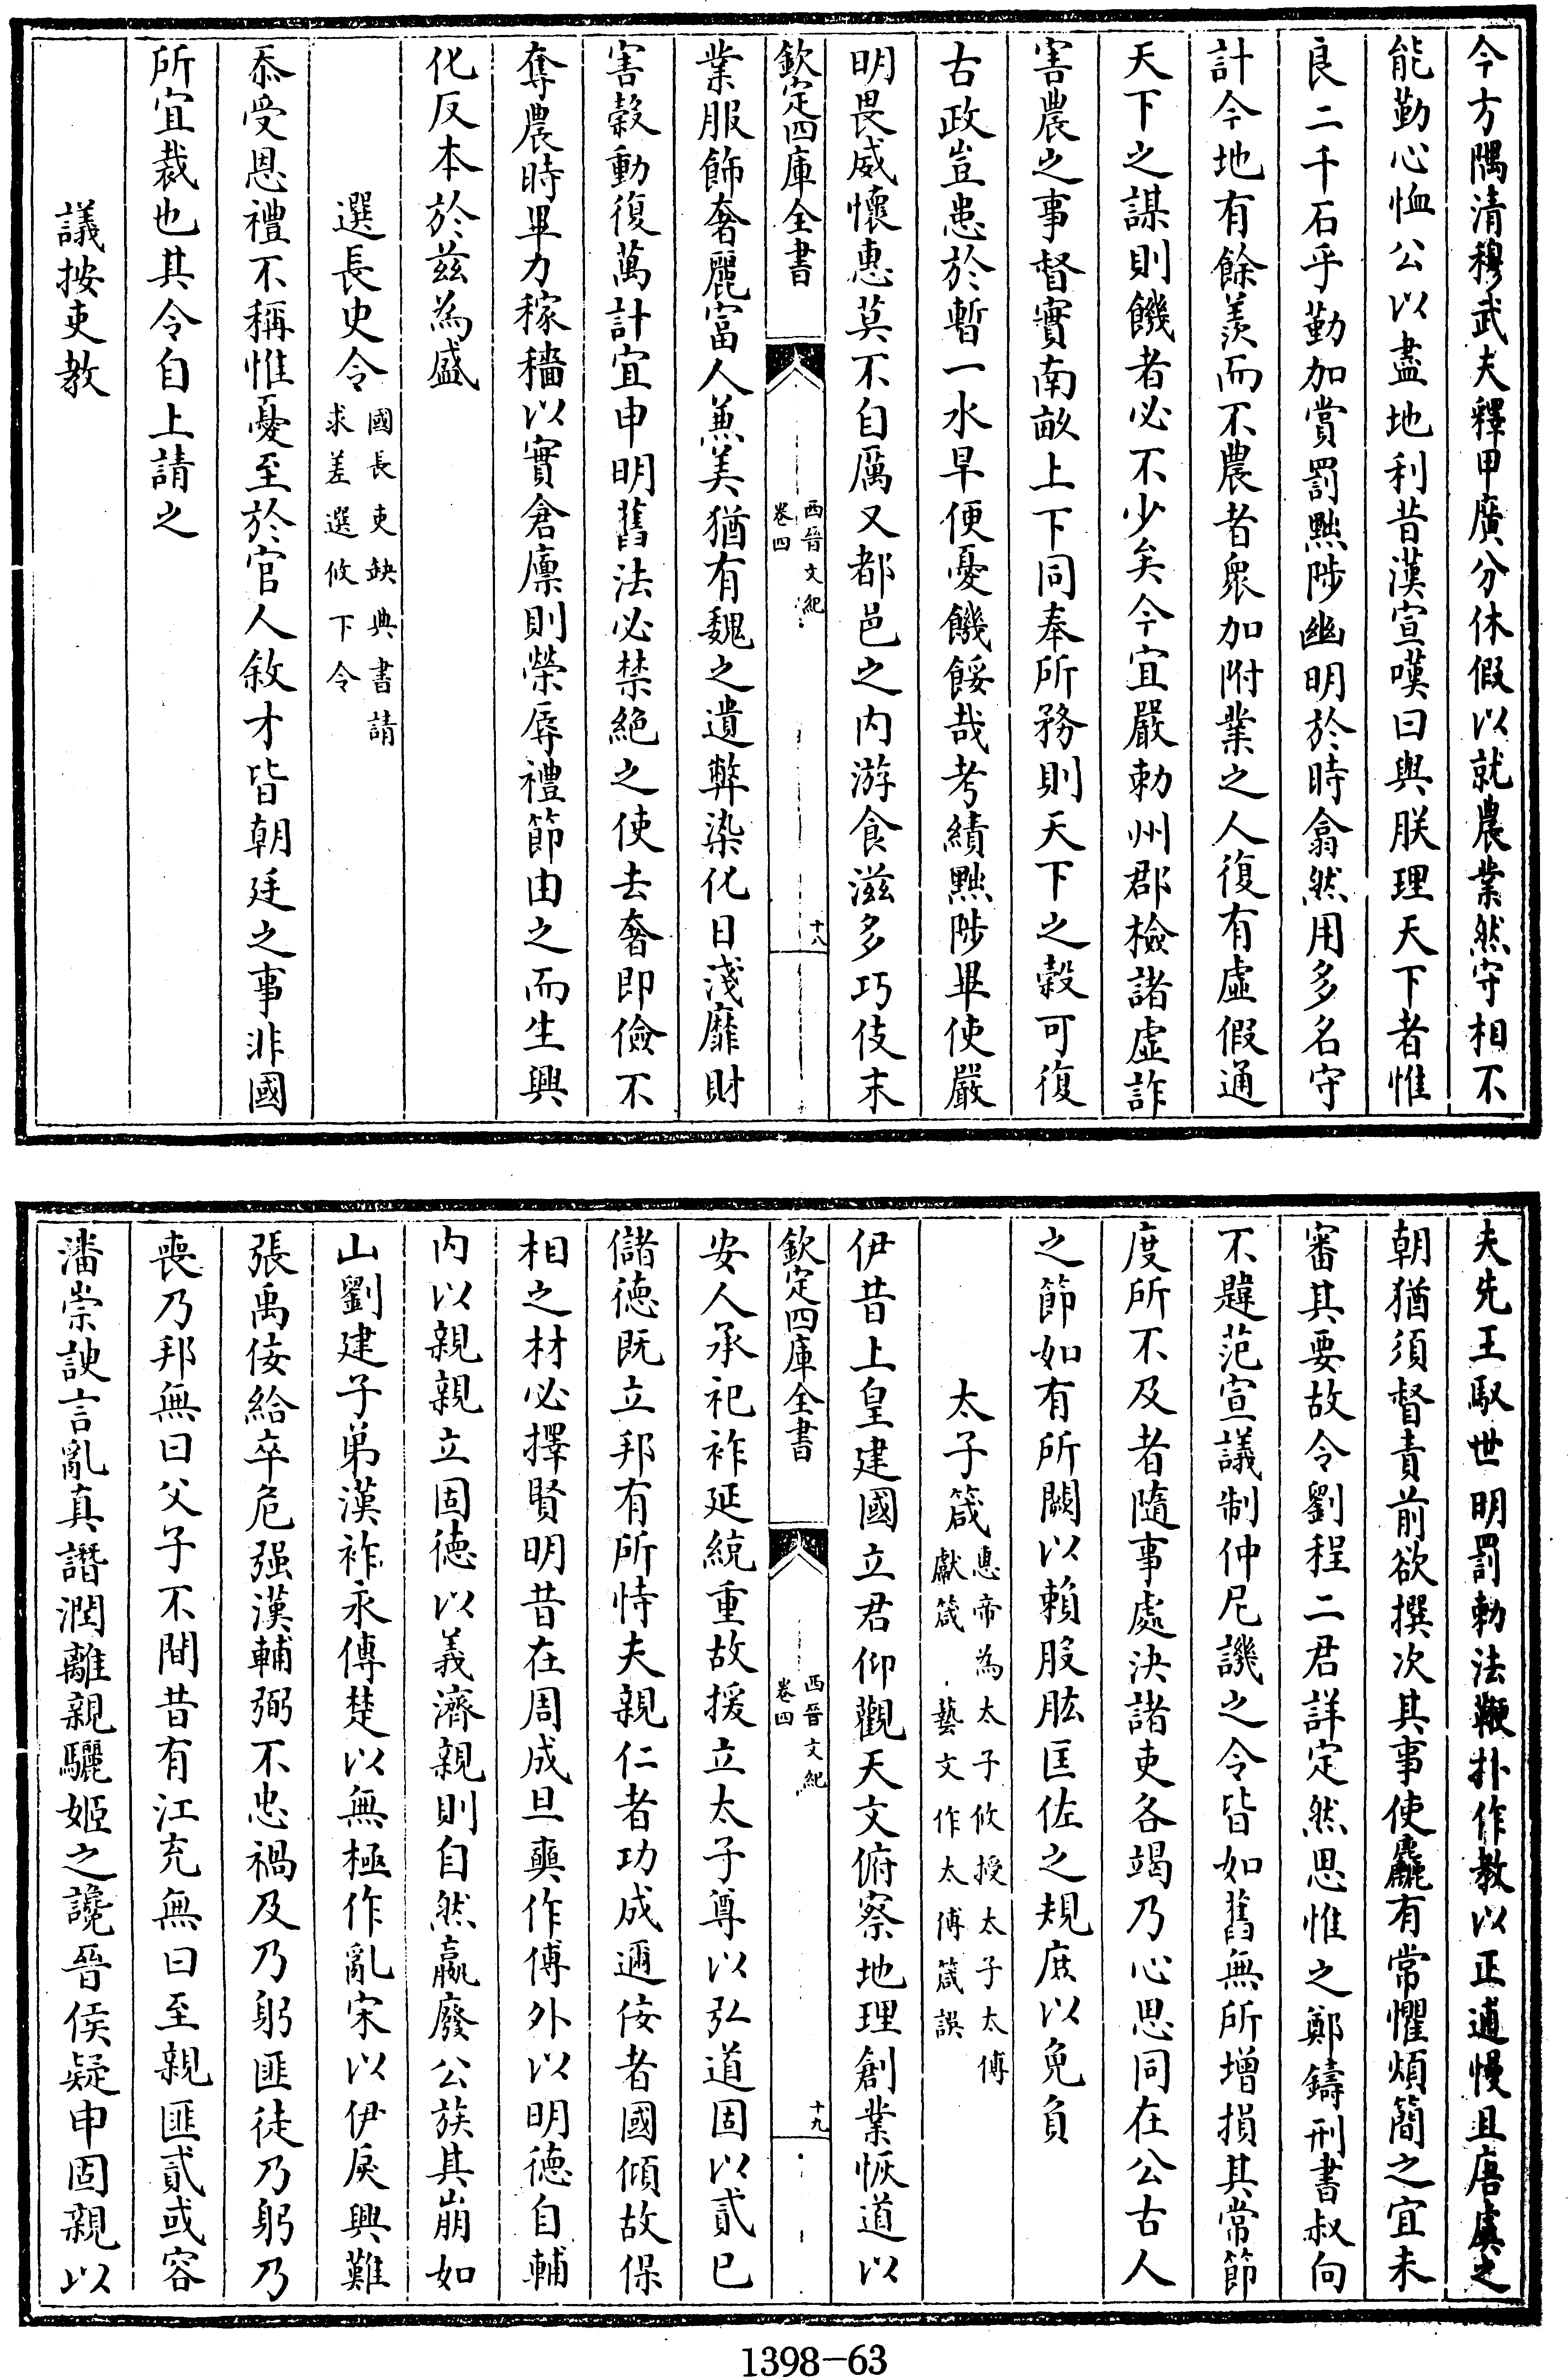 今方隅清穆武夫釋甲廣分休假以就農業然守相不
能勤心恤公以盡地利昔漢宣嘆曰與朕理天下者惟
良二千石乎勤加賞罰黜陟幽明於時翕然用多名守
計今地有餘羨而不農者衆加附業之人復有虛假通
天下之謀則饑者必不少矣今宜嚴勅州郡檢諸虛詐
害農之事督實南畝上下同奉所務則天下之穀可復
古政豈患於暫一水旱便憂饑餒哉考績黜陟畢使嚴
明畏威懷惠莫不自厲又都邑之内游食滋多巧伎末
欽定四庫全書
西晉文紀
卷四
十八
業服飾奢麗富人兼美猶有魏之遺弊染化日淺靡財
害穀動復萬計宜申明舊法必禁絶之使去奢即儉不
奪農時畢力稼穡以實倉廪則榮辱禮節由之而生興
化反本於兹為盛
選長史令
國長吏缺典書請
求差選攸下令
忝受恩禮不稱惟憂至於官人敘才皆朝廷之事非國
所宜裁也其令自上請之
議按吏教
夫先王馭世明罰勅法鞭扑作教以正逋慢且唐虞之
朝猶須督責前欲撰次其事使麤有常懼煩簡之宜未
審其要故令劉程二君詳定然思惟之鄭鑄刑書叔向
不韙范宣議制仲尼譏之令皆如舊無所增損其常節
度所不及者隨事處決諸吏各竭乃心思同在公古人
之節如有所闕以賴股肱匡佐之規庶以免負
太子箴
惠帝為太子攸授太子太傅
獻箴 藝文作太傅箴誤
伊昔上皇建國立君仰觀天文俯察地理創業恢道以
欽定四庫全書
西晉文紀
卷四
十九
安人承祀祚延統重故援立太子尊以弘道固以貳已
儲徳既立邦有所恃夫親仁者功成邇佞者國傾故保
相之材必擇賢明昔在周成旦奭作傅外以明徳自輔
内以親親立固徳以義濟親則自然嬴廢公族其崩如
山劉建子弟漢祚永傳楚以無極作亂宋以伊戾興難
張禹佞給卒危强漢輔弼不忠禍及乃躬匪徒乃躬乃
喪乃邦無曰父子不間昔有江充無曰至親匪貳或容
潘崇諛言亂真譖潤離親驪姬之讒晉侯疑申固親以
1398-63